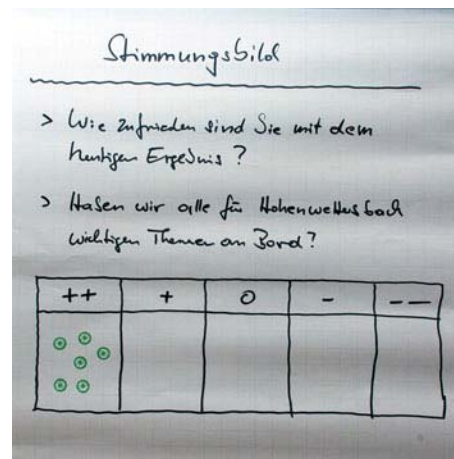 Stimmungsbild
> Wie zufrieden sind Sie mit dem
heutigen Ergebnis?
> Haben wir alle für Hohenwettersbach
wichtigen Themen an Bord?
++ + o - --